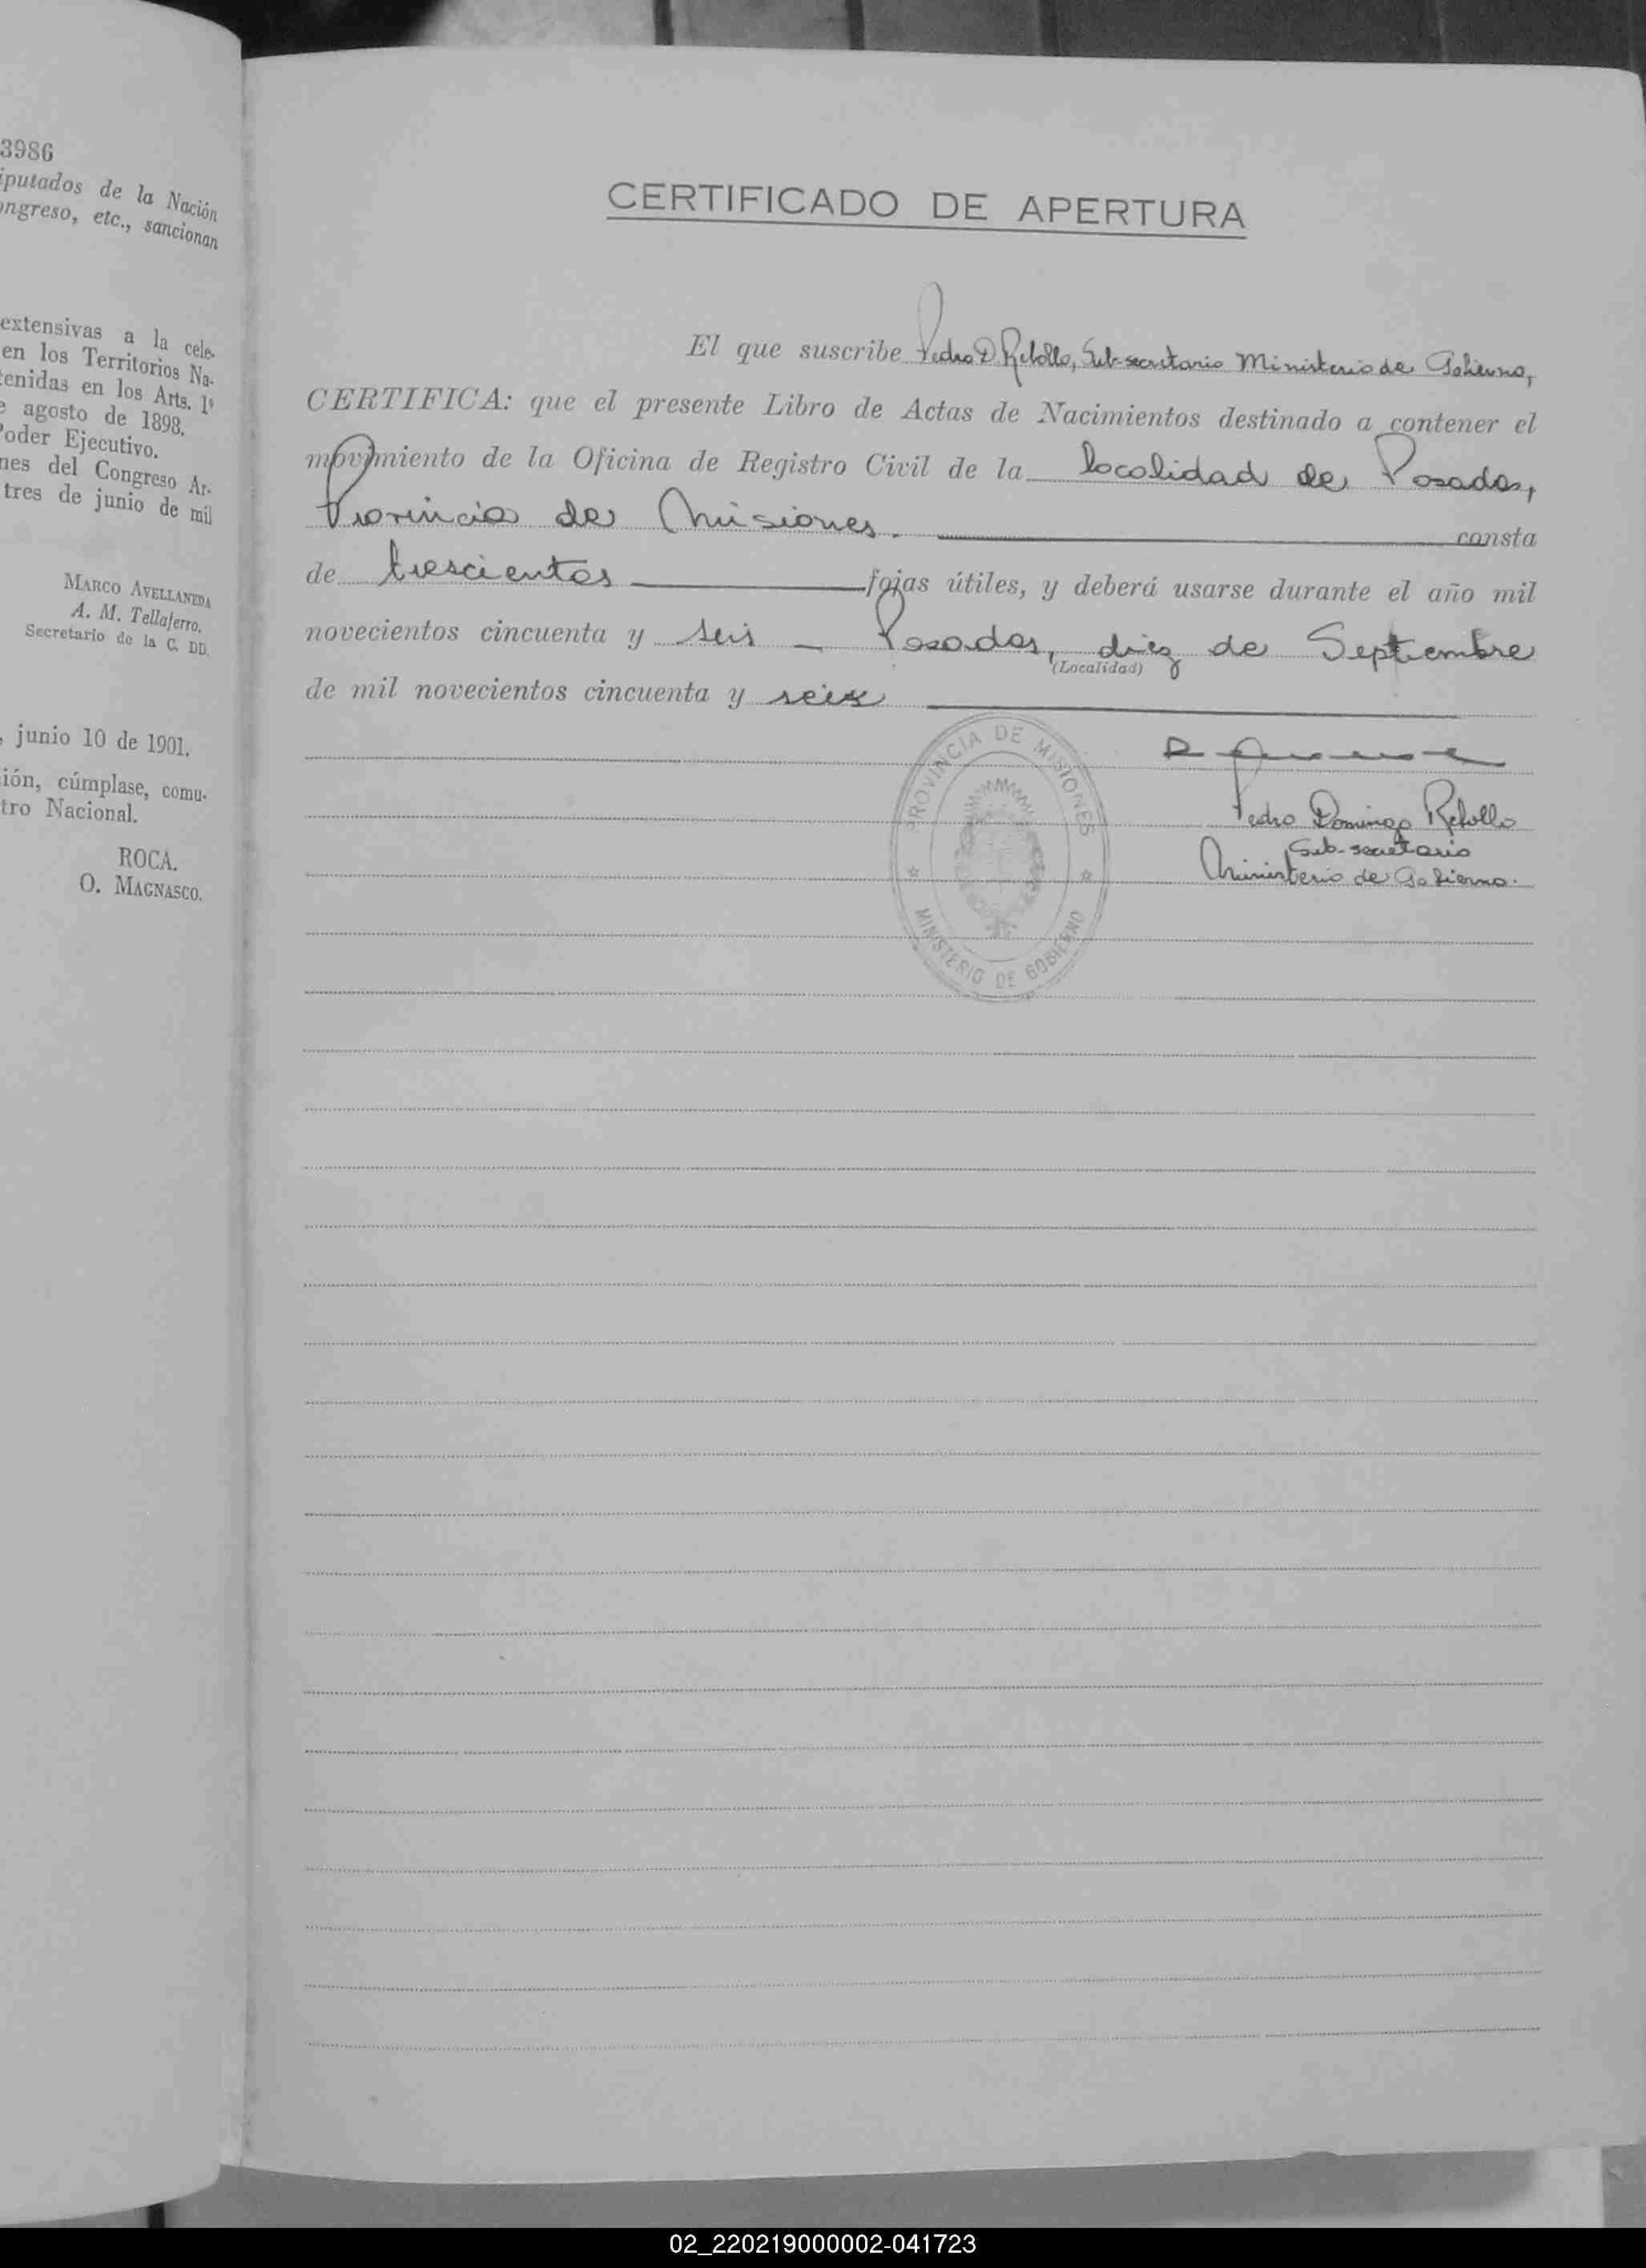 3986
iputados de la Nación
ongreso, etc., sancionan
extensivas a la cele-
en los Territorios Na-
tenidas en los Arts. 1º
e agosto de 1898.
Poder Ejecutivo.
nes del Congreso Ar-
tres de junio de mil
MARCO AVELLANEDA
A. M. Tellaferro,
Secretario de la C. DD.
, junio 10 de 1901.
ción, cúmplase, comu-
stro Nacional.
ROCA.
O. MAGNASCO.
CERTIFICADO DE APERTURA
El que suscribe Pedro D. Rebollo, Sub-secretario Ministerio de Gobierno,
CERTIFICA: que el presente Libro de Actas de Nacimientos destinado a contener el
movimiento de la Oficina de Registro Civil de la localidad de Posadas,
Provincia de Misiones. consta
de trescientos fojas útiles, y deberá usarse durante el año mil
novecientos cincuenta y seis - Posadas, diez de Septiembre
(Localidad)
de mil novecientos cincuenta y seis
PROVINCIA DE MISIONES
MINISTERIO DE GOBIERNO
Pedro Domingo Rebollo
Sub-secretario
Ministerio de Gobierno.
02_220219000002-041723